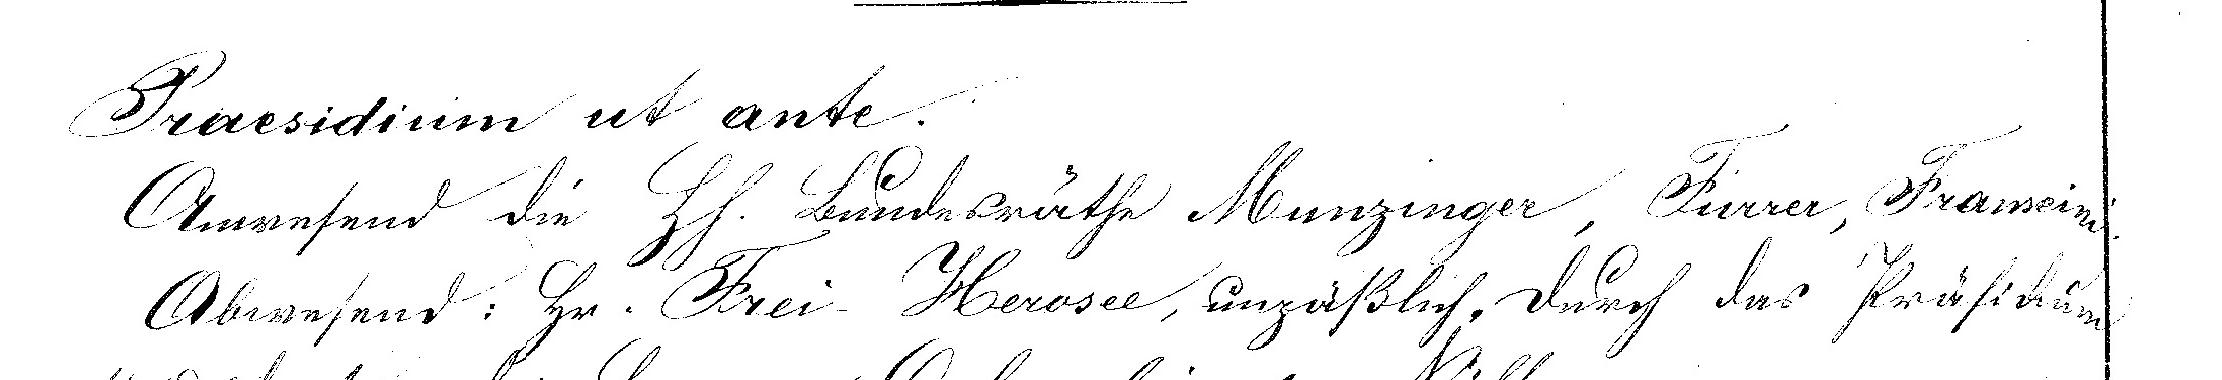 Praesidium ut ante.
Anwesend die Hh. Bundesräthe Munzinger, Furrer, Franscini.
Abwesend: Hr. Frei-Herosee, unpäßlich. Durch das Präsidium